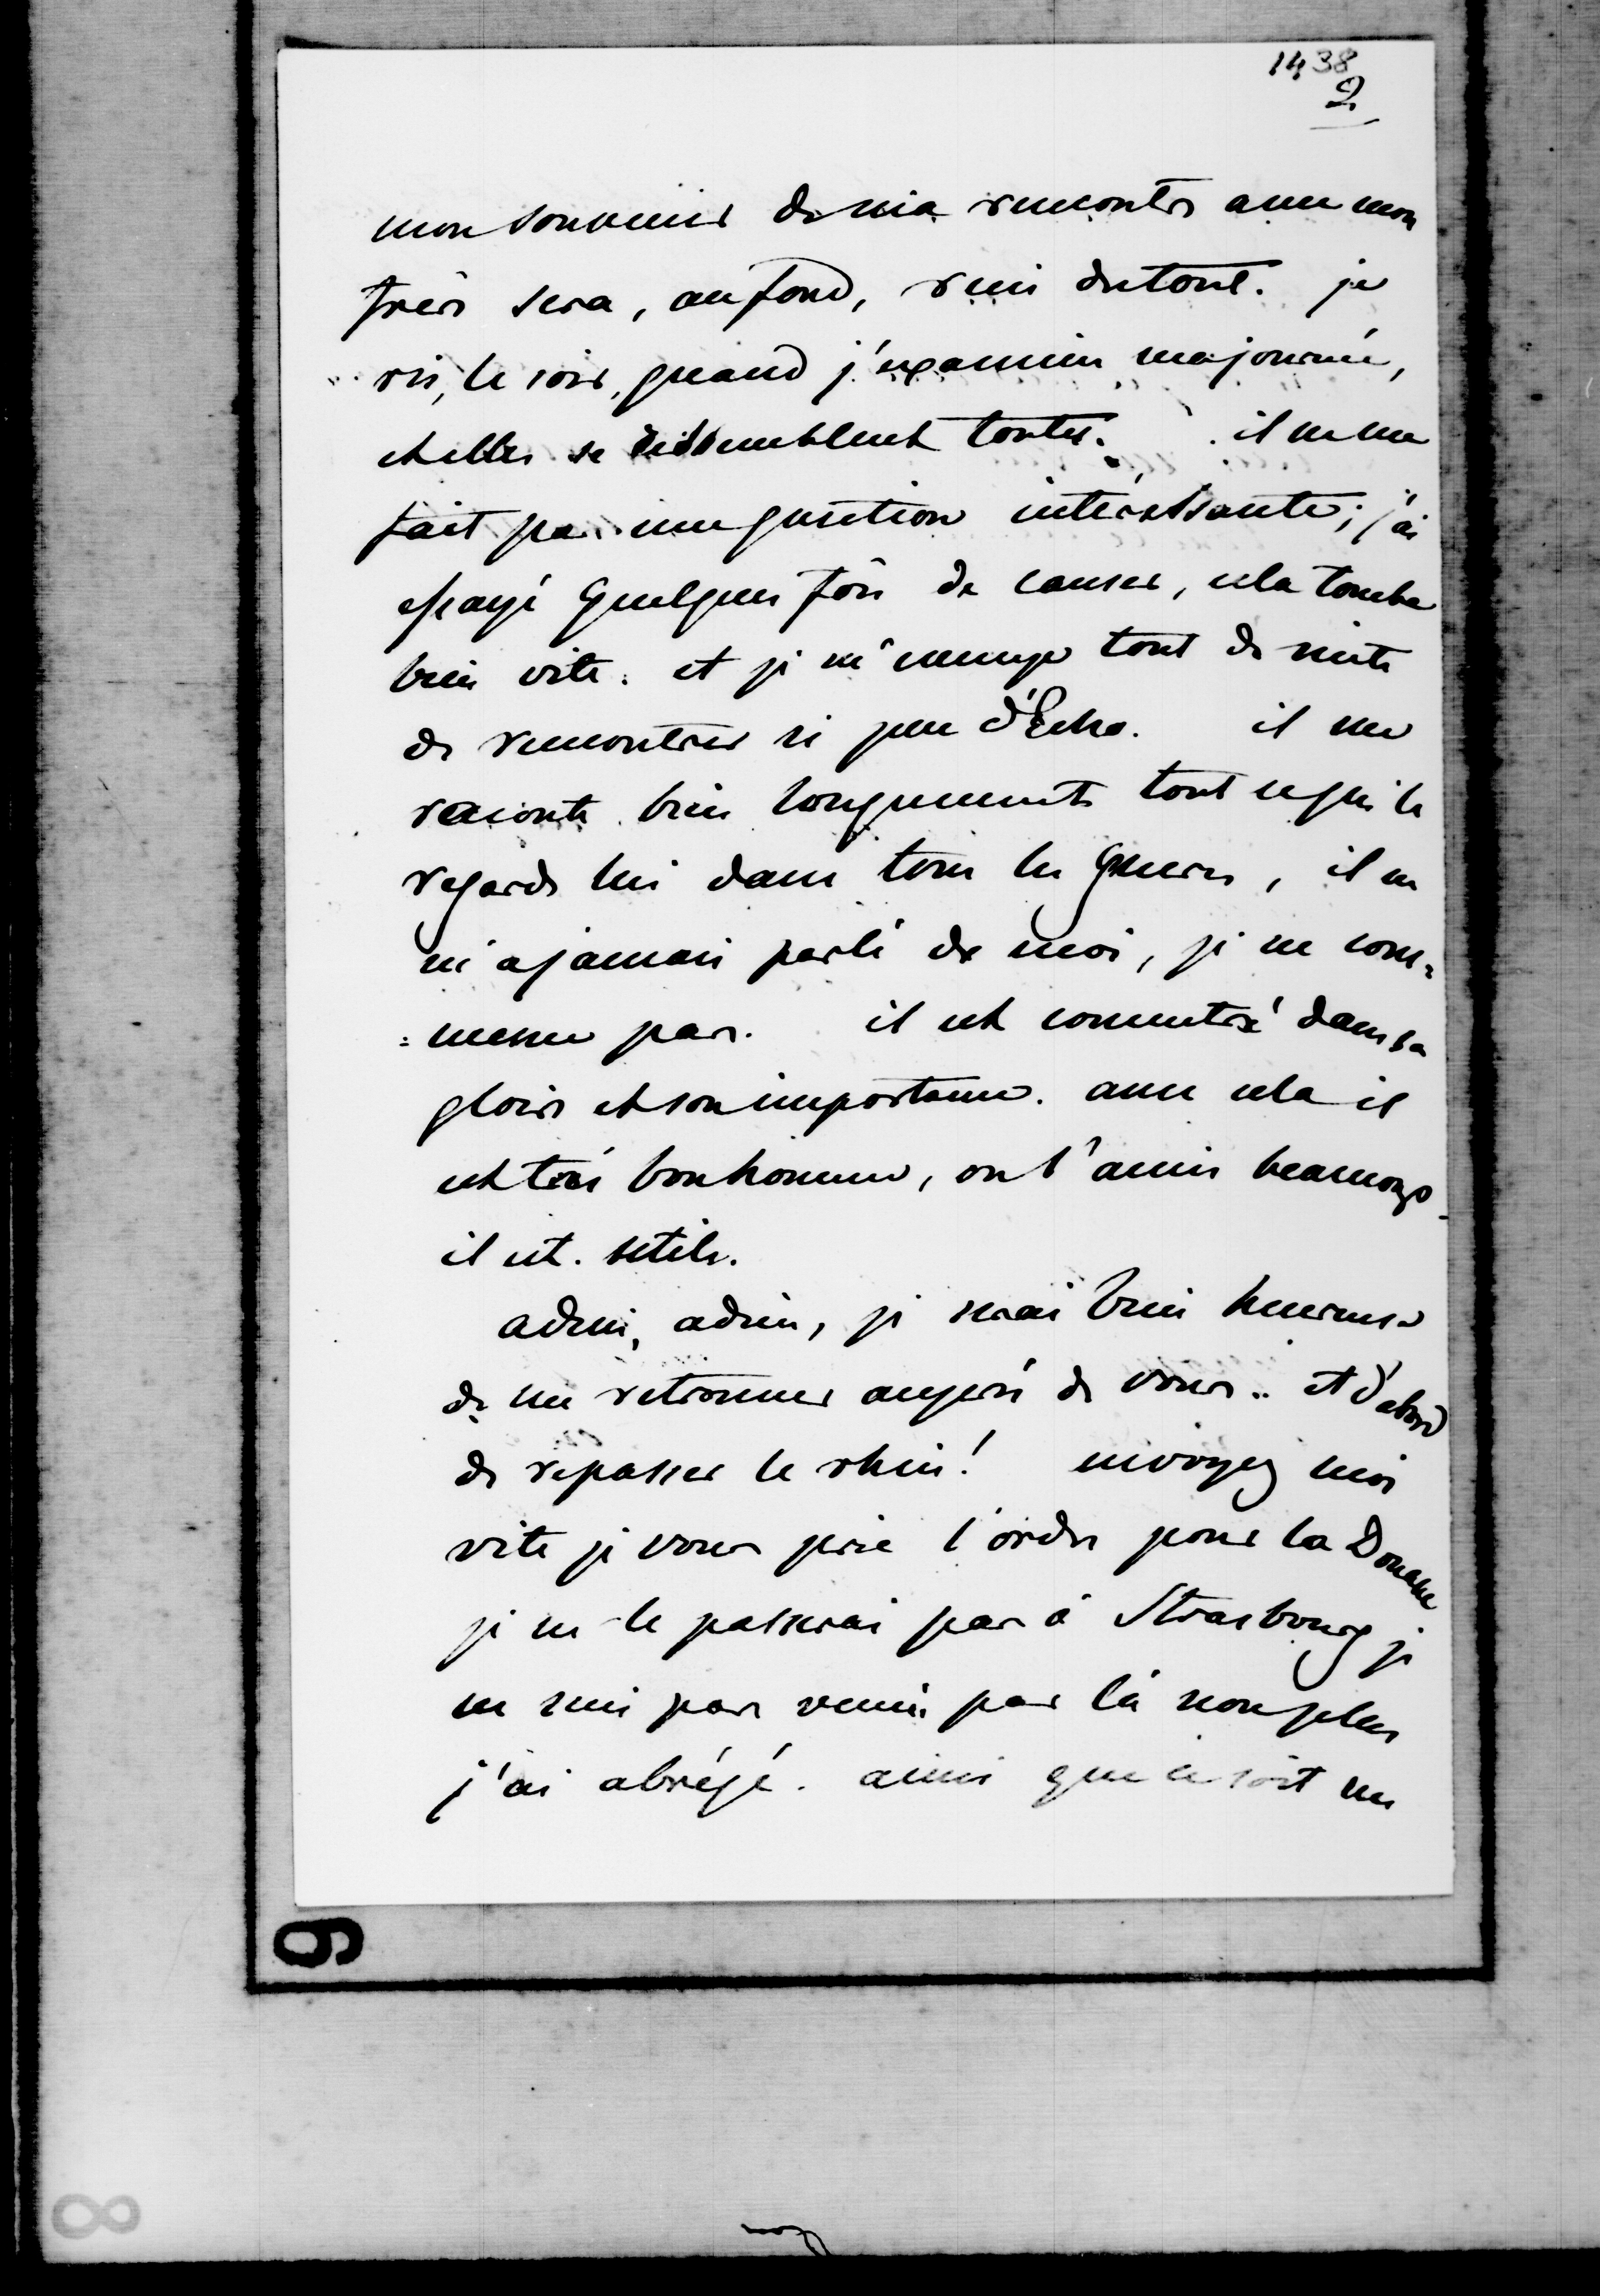 1438
2
mon souvenir de ma rencontre avec mon
frère sera, au fond, rien du tout. je
ris, le soir, quand j'examine ma journée,
et elles se ressemblent toutes. il ne me
fait pas une question intéressante; j'ai
essayé quelques fois de causer, cela tombe
bien vite. et je m'ennuye tout de suite
de rencontrer si peu d'Echo. il me
raconte bien longuement tout ce qui le
regarde lui dans tous les genres, il ne
m'a jamais parlé de moi, je ne com=
=mence pas. il est concentré dans sa
gloire et son importance. avec cela il
est très bon homme, on l'aime beaucoup
il est. stile.
adieu, adieu, je serai bien heureuse
de me retrouver auprès de vous.. et d'abord
de repasser le rhin! envoyez moi
vite je vous prie l'ordre pour la Douane
je ne le passerai pas à Strasbourg je
ne suis pas venue par là non plus
j'ai abrégé. ainsi que ce soit un
9
8